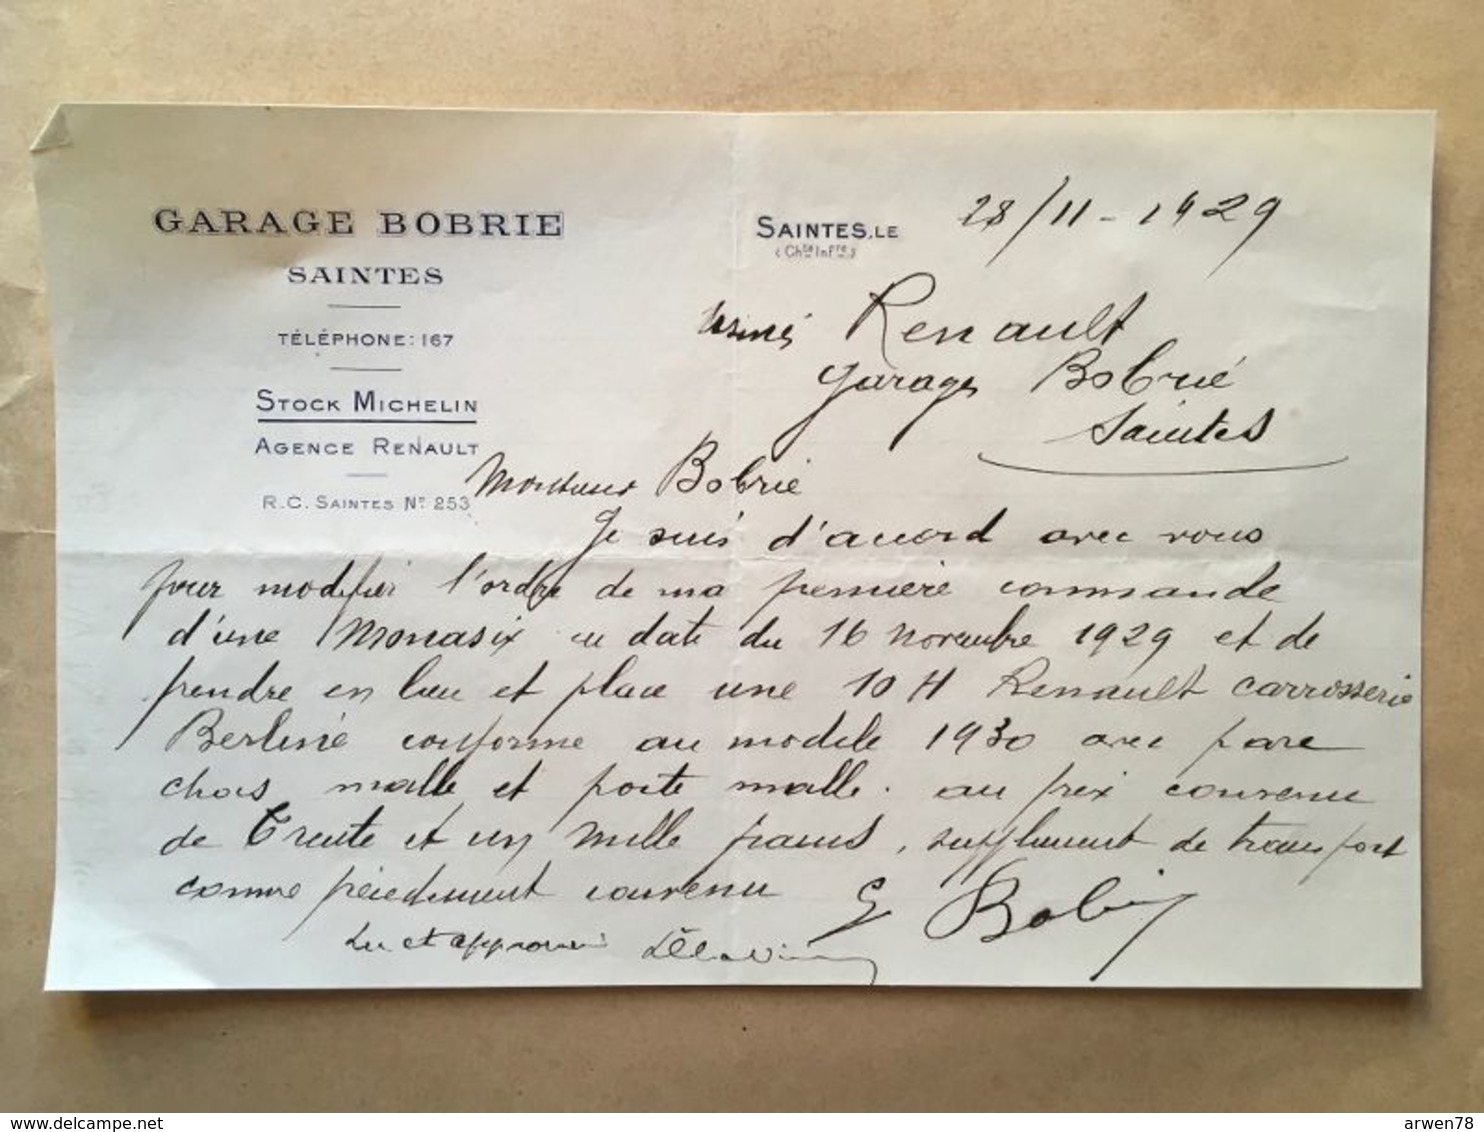 GARAGE BOBRIE
SAINTES
TÉLÉPHONE: 167
STOCK MICHELIN
AGENCE RENAULT
R.C. SAINTES No 253
SAINTES, LE 28/11-1929
(Chte Infre)
Usines Renault
Garages Bobrie
Saintes
Monsieur Bobrie
Je suis d'accord avec vous
pour modifier l'ordre de ma première commande
d'une Monasix en date du 16 novembre 1929 et de
prendre en lieu et place une 10 H Renault carrosserie
Berline conforme au modèle 1930 avec pare
chocs malle et porte malle. au prix convenu
de Trente et un mille francs, supplément de transport
comme précédemment convenu
Lu et approuvé
Bobrie
delcampe.net
arwen78